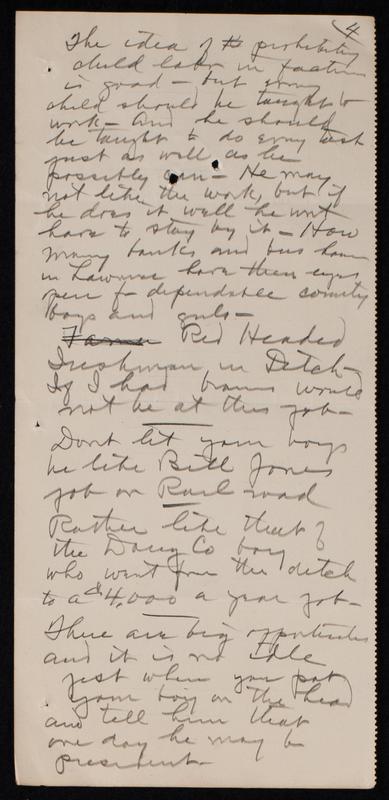 4
The idea of prohibiting
child labor in factories
is good - but every
child should be taught to
work - and he should
be taught to do every task
just as well as he
possibly can - He may
not like the work, but if
he does it well he wont
have to stay by it - How
many banks and bus houses
in Lawrence have their eyes
open for dependable country
boys and girls -
Farmer Red Headed
Irishman in Ditch -
If I had brains would
not be at this job -
Dont let your boys
be like Bill Jones
job on Rail road
Rather like that of
the Doug Co boy
who went from the ditch
to a $4,000 a year job -
There are big opportunities
and it is not idle
just when you pat
your boy on the head
and tell him that
one day he may be
president -